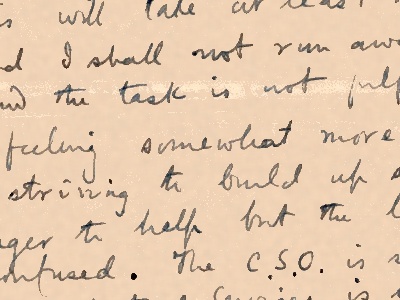 will take at least
I shall not run
the task is not
feeling somewhat more
striving to build up
to help but the
confused. The C.S.O. is